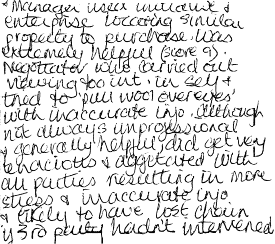 + Manager used initiative &
enterprise locating similar
property to purchase. Was
extremely helpful (score 9).
Negotiator who carried out
viewing too int. in self &
tried to 'pull wool over eyes'
with inaccurate info. although
not always unprofessional
& generally helpful did get very
tenacious & aggitated with
all parties resulting in more
stress & inaccurate info
& likely to have lost chain
if 3rd party hadn't intervened